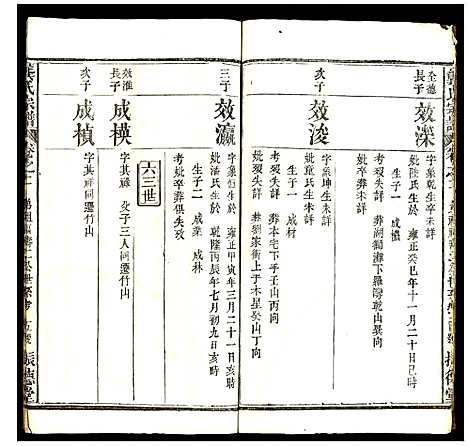 全德
長子
效濼
字象乾生卒未詳
妣陸氏生於雍正癸巳年十一月二十日巳時
生子一 成櫃
考塟失考 妣塟湖獅灘下羅灣乾山巽向
次子
效浚
字象坤生卒未詳
妣童氏生卒未詳
生子一 成材
考塟本宅下手壬山丙向
妣塟劉家衝上手木星癸山丁向
三子
效瀛
字象恒生於雍正甲寅年三月二十一日寅時
妣潘氏生於乾隆丙辰年七月初九日亥時
生子二 成業 成林
考妣卒塟俱失攷
六三世
效淮
長子
成模
字其祿 父子三人同遷竹山
次子
成楨
字其祥同遷竹山
龔氏宗譜
振德堂